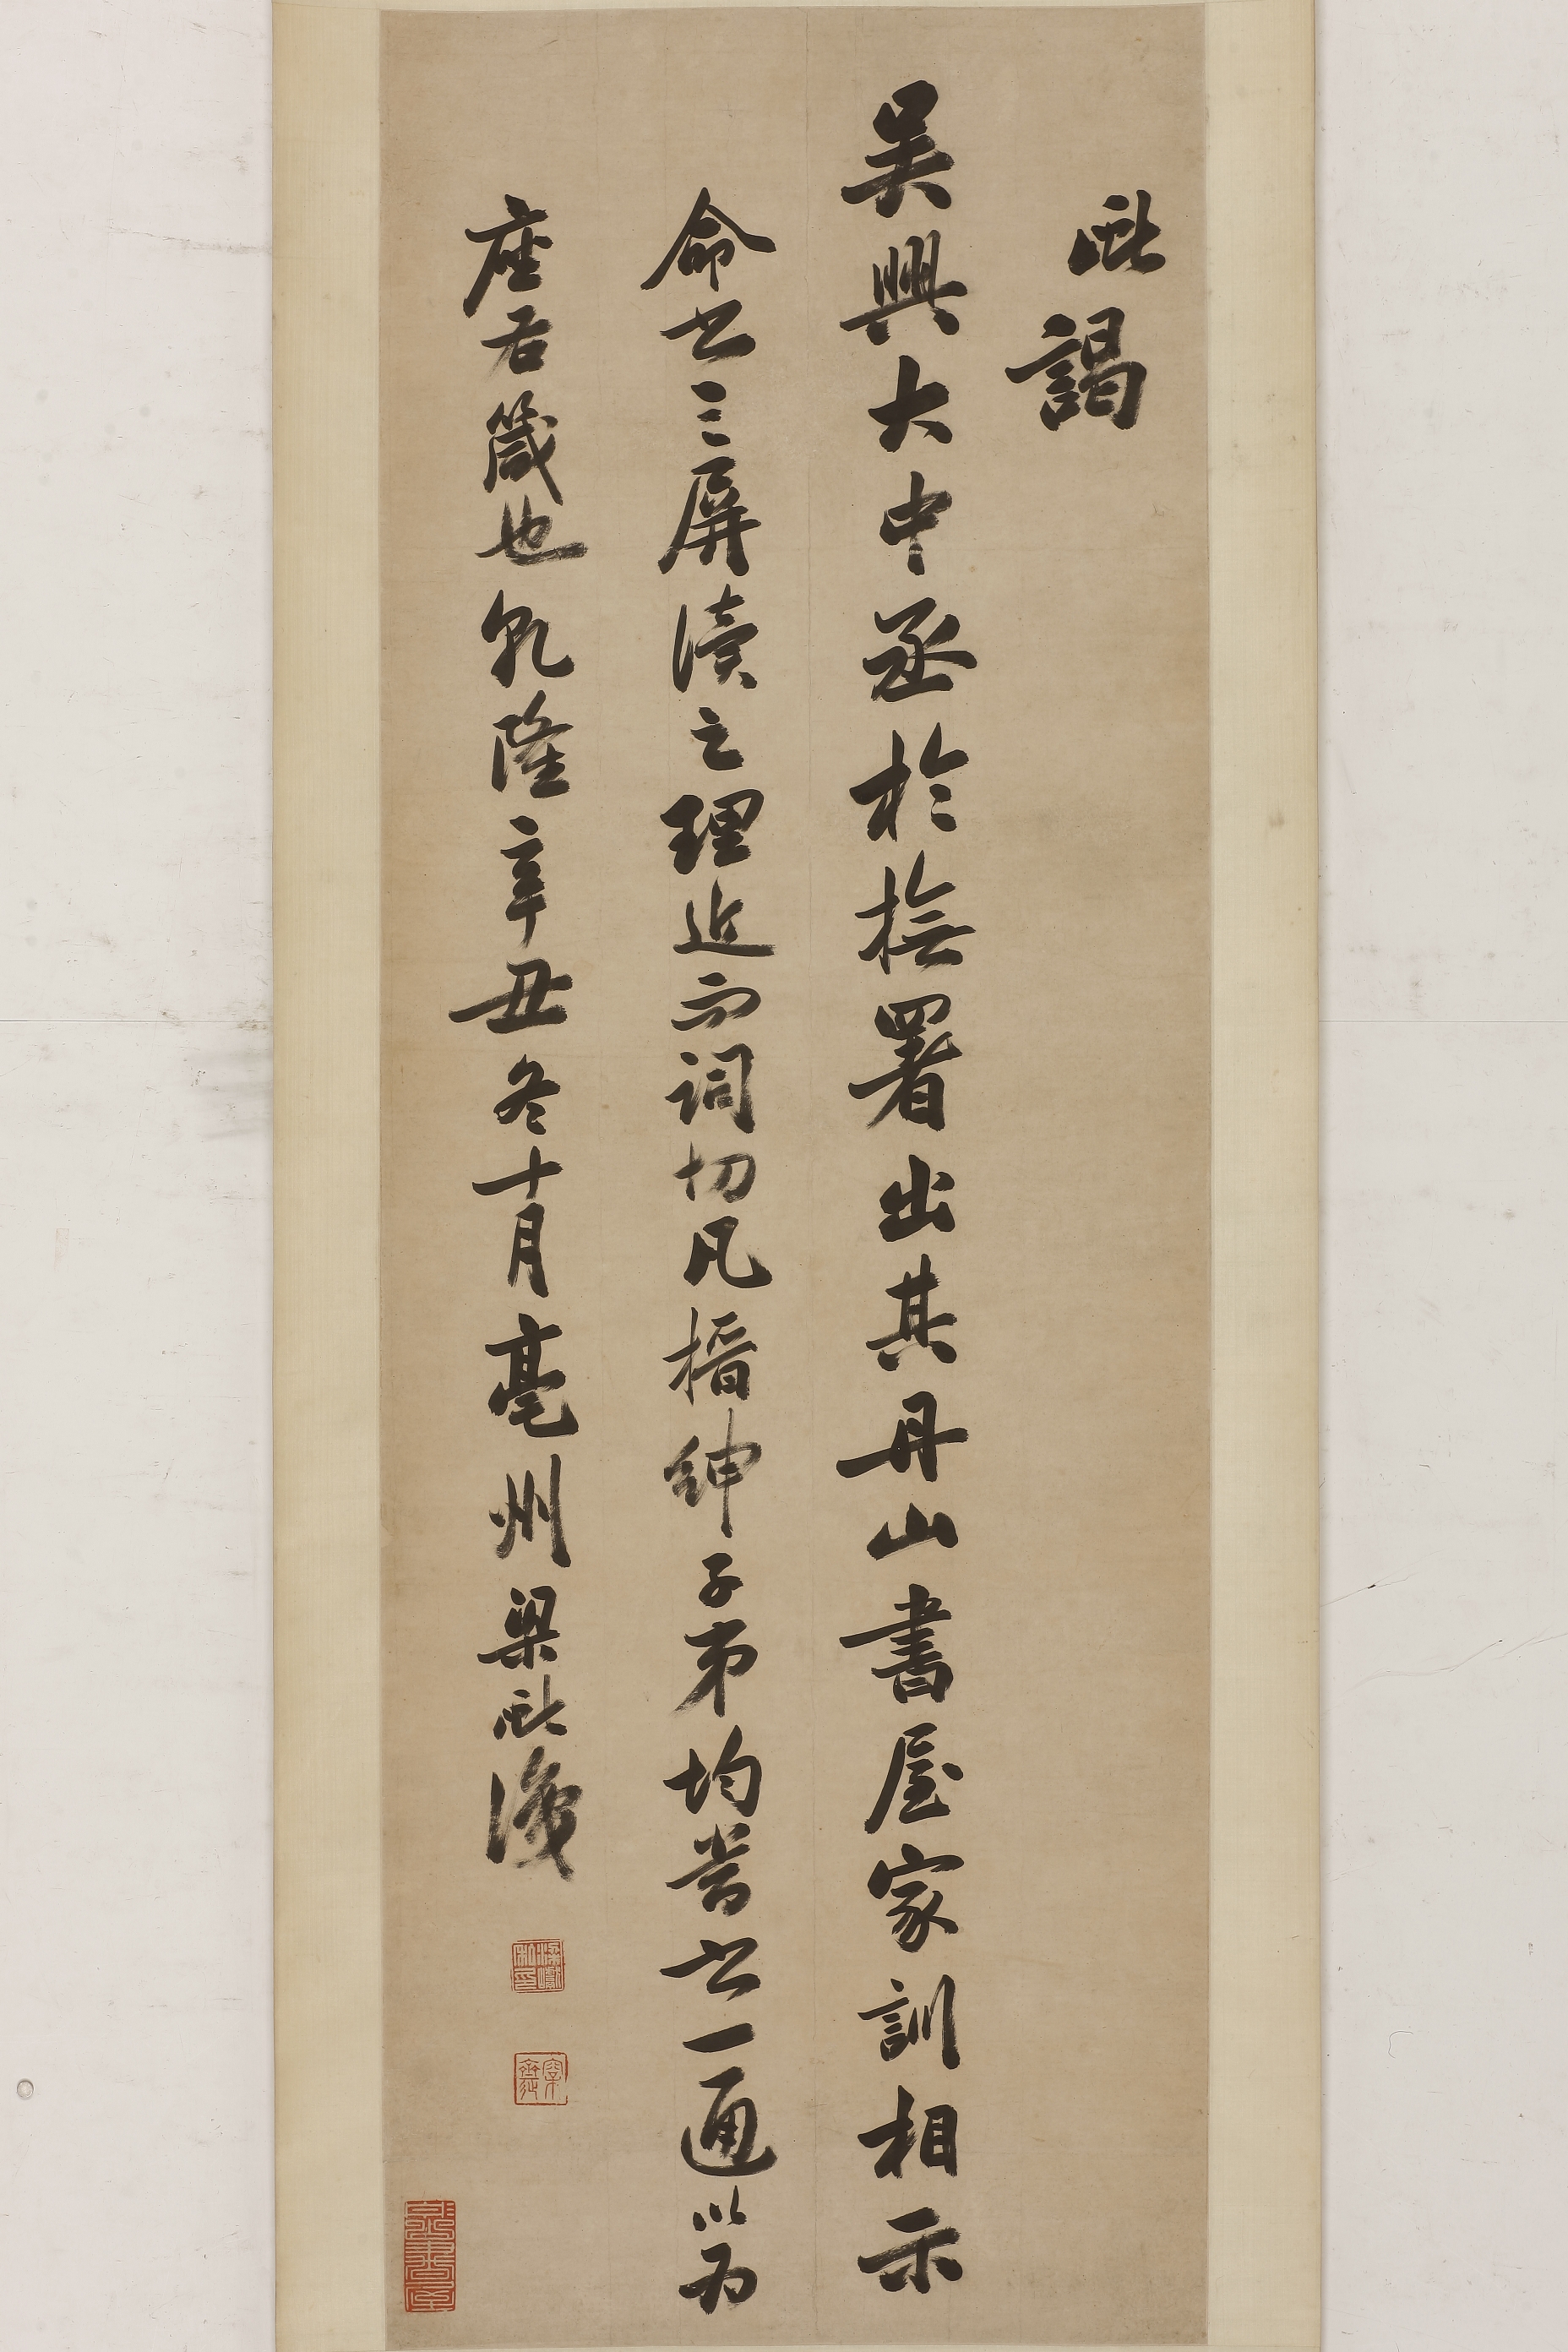 巘謁
吳興大中丞於撫署出其丹山書屋家訓相示
命書三屏讀之理近而詞切凡搢紳子弟均當書一通以為
座右箴也乾隆辛丑冬十月亳州梁巘識